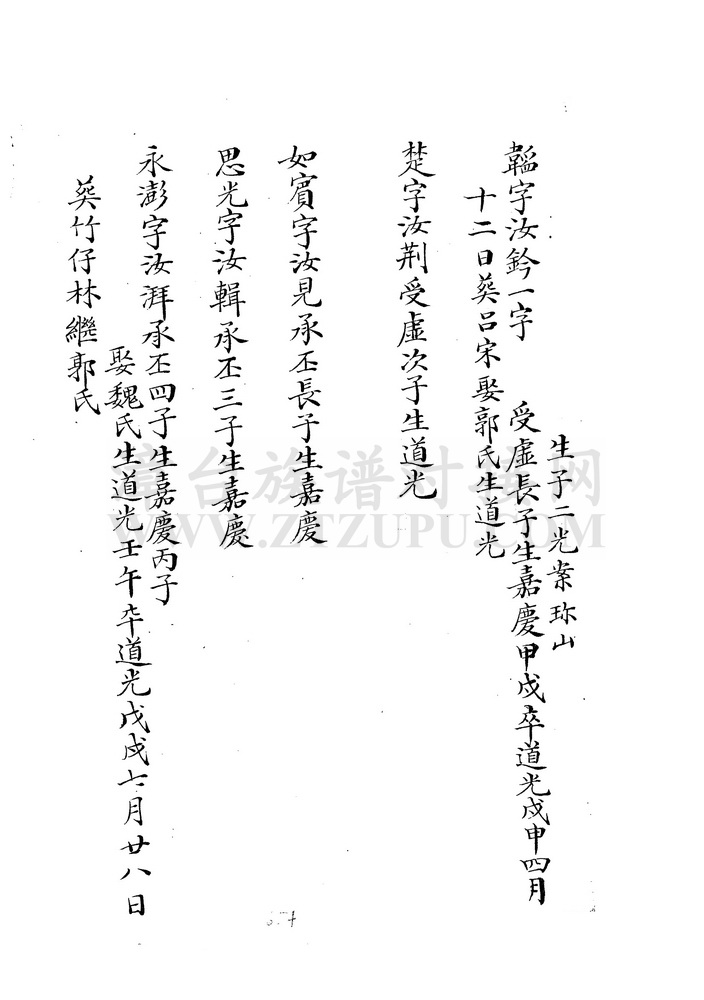 生子二光案珎山
韞字汝鈐一字 受虛長子生嘉慶甲戌卒道光戊申四月
十二日葵呂宋娶郭氏生道光
楚字汝荆受虛次子生道光
如賓字汝見承丕長子生嘉慶
思光字汝輯承丕三子生嘉慶
永澎字汝湃承丕四子生嘉慶丙子
娶魏氏生道光壬午卒道光戊戌七月廿八日
葵竹仔林繼郭氏
WWW.ZTZUPU.COM
台族谱 网